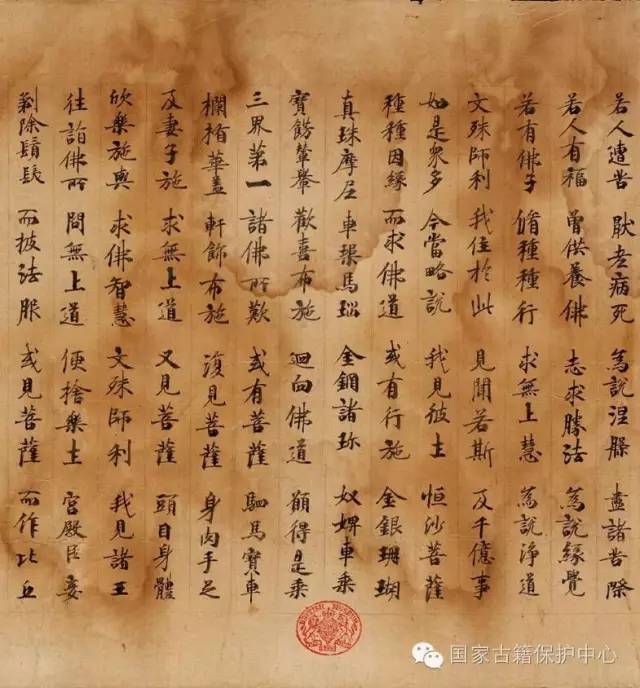 若人遭苦 猒老病死 為說涅槃 盡諸苦際
若人有福 曾供養佛 志求勝法 為說緣覺
若有佛子 脩種種行 求無上慧 為說淨道
文殊師利 我住於此 見聞若斯 及千億事
如是衆多 今當略說 我見彼土 恒沙菩薩
種種因緣 而求佛道 或有行施 金銀珊瑚
真珠摩尼 車璖馬瑙 金剛諸珎 奴婢車乘
寶飾輦轝 歡喜布施 迴向佛道 願得是乘
三界第一 諸佛所歎 或有菩薩 駟馬寶車
欄楯華蓋 軒飾布施 復見菩薩 身肉手足
及妻子施 求無上道 又見菩薩 頭目身體
欣樂施與 求佛智慧 文殊師利 我見諸王
往詣佛所 問無上道 便捨樂土 宮殿臣妾
剃除鬚髮 而披法服 或見菩薩 而作比丘
国家古籍保护中心